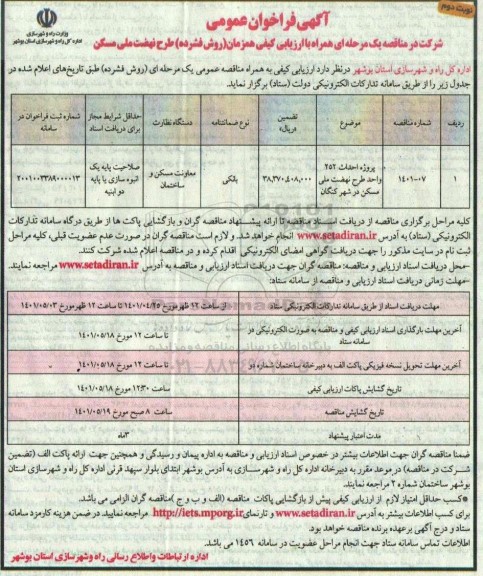 نوبت دوم
وزارت راه و شهرسازی
اداره کل راه و شهرسازی استان بوشهر
آگهی فراخوان عمومی
شرکت در مناقصه یک مرحله ای همراه با ارزیابی کیفی همزمان(روش فشرده) طرح نهضت ملی مسکن
اداره کل راه و شهرسازی استان بوشهر درنظر دارد ارزیابی کیفی به همراه مناقصه عمومی یک مرحله ای (روش فشرده) طبق تاریخ‌های اعلام شده در
جدول زیر را از طریق سامانه تدارکات الکترونیکی دولت (ستاد) برگزار نماید.
ردیف | شماره مناقصه | موضوع | تضمین «ریال» | نوع ضمانتنامه | دستگاه نظارت | حداقل شرایط مجاز برای دریافت اسناد | شماره ثبت فراخوان در سامانه
۱ | ۱۴۰۱-۰۷ | پروژه احداث ۲۵۲ واحد طرح نهضت ملی مسکن در شهر کنگان | ۳۸,۳۷۰,۴۰۸,۰۰۰ | بانکی | معاونت مسکن و ساختمان | صلاحیت پایه یک انبوه سازی یا پایه دو ابنیه | ۲۰۰۱۰۰۳۳۸۹۰۰۰۰۱۳
کلیه مراحل برگزاری مناقصه از دریافت اسناد مناقصه تا ارائه پیشنهاد مناقصه گران و بازگشایی پاکت ها از طریق درگاه سامانه تدارکات
الکترونیکی (ستاد) به آدرس www.setadiran.ir انجام خواهد شد. و لازم است مناقصه گران در صورت عدم عضویت قبلی، کلیه مراحل
ثبت نام در سایت مذکور را جهت دریافت گواهی امضای الکترونیکی اقدام کرده و در مناقصه اعلام شده شرکت کنند.
-محل دریافت اسناد ارزیابی و مناقصه: مناقصه گران جهت دریافت اسناد ارزیابی و مناقصه به آدرس www.setadiran.ir مراجعه نمایند.
-مهلت زمانی دریافت اسناد ارزیابی و مناقصه از سامانه ستاد:
مهلت دریافت اسناد از طریق سامانه تدارکات الکترونیکی ستاد | از ساعت ۱۲ ظهر مورخ ۱۴۰۱/۰۴/۲۵ تا ساعت ۱۲ ظهر مورخ ۱۴۰۱/۰۵/۰۳
آخرین مهلت بارگذاری اسناد ارزیابی کیفی و مناقصه به صورت الکترونیکی در سامانه ستاد | تا ساعت ۱۲ مورخ ۱۴۰۱/۰۵/۱۸
آخرین مهلت تحویل نسخه فیزیکی پاکت الف به دبیرخانه ساختمان شماره دو | تا ساعت ۱۲ مورخ ۱۴۰۱/۰۵/۱۸
تاریخ گشایش پاکات ارزیابی کیفی | ساعت ۱۲:۳۰ مورخ ۱۴۰۱/۰۵/۱۸
تاریخ گشایش مناقصه | ساعت ۸ صبح مورخ ۱۴۰۱/۰۵/۱۹
مدت اعتبار پیشنهاد | ۳ماه
ضمنا مناقصه گران جهت اطلاعات بیشتر در خصوص اسناد ارزیابی و مناقصه به اداره پیمان و رسیدگی و همچنین جهت ارائه پاکت الف (تضمین
شرکت در مناقصه) در موعد مقرر به دبیرخانه اداره کل راه و شهرسازی به آدرس بوشهر ابتدای بلوار سپهبد قرنی اداره کل راه و شهرسازی استان
بوشهر ساختمان شماره ۲ مراجعه نمایند.
*کسب حداقل امتیاز لازم از ارزیابی کیفی پیش از بازگشایی پاکات مناقصه (الف و ب و ج )مناقصه گران الزامی می باشد.
برای کسب اطلاعات بیشتر به آدرس www.setadiran.ir و تارنمای http://iets.mporg.ir مراجعه نمایید. در ضمن هزینه کارمزد سامانه
ستاد و درج آگهی برعهده برنده مناقصه خواهد بود.
اطلاعات تماس سامانه ستاد جهت انجام مراحل عضویت در سامانه ۱۴۵۶ می باشد.
اداره ارتباطات و اطلاع رسانی راه و شهرسازی استان بوشهر